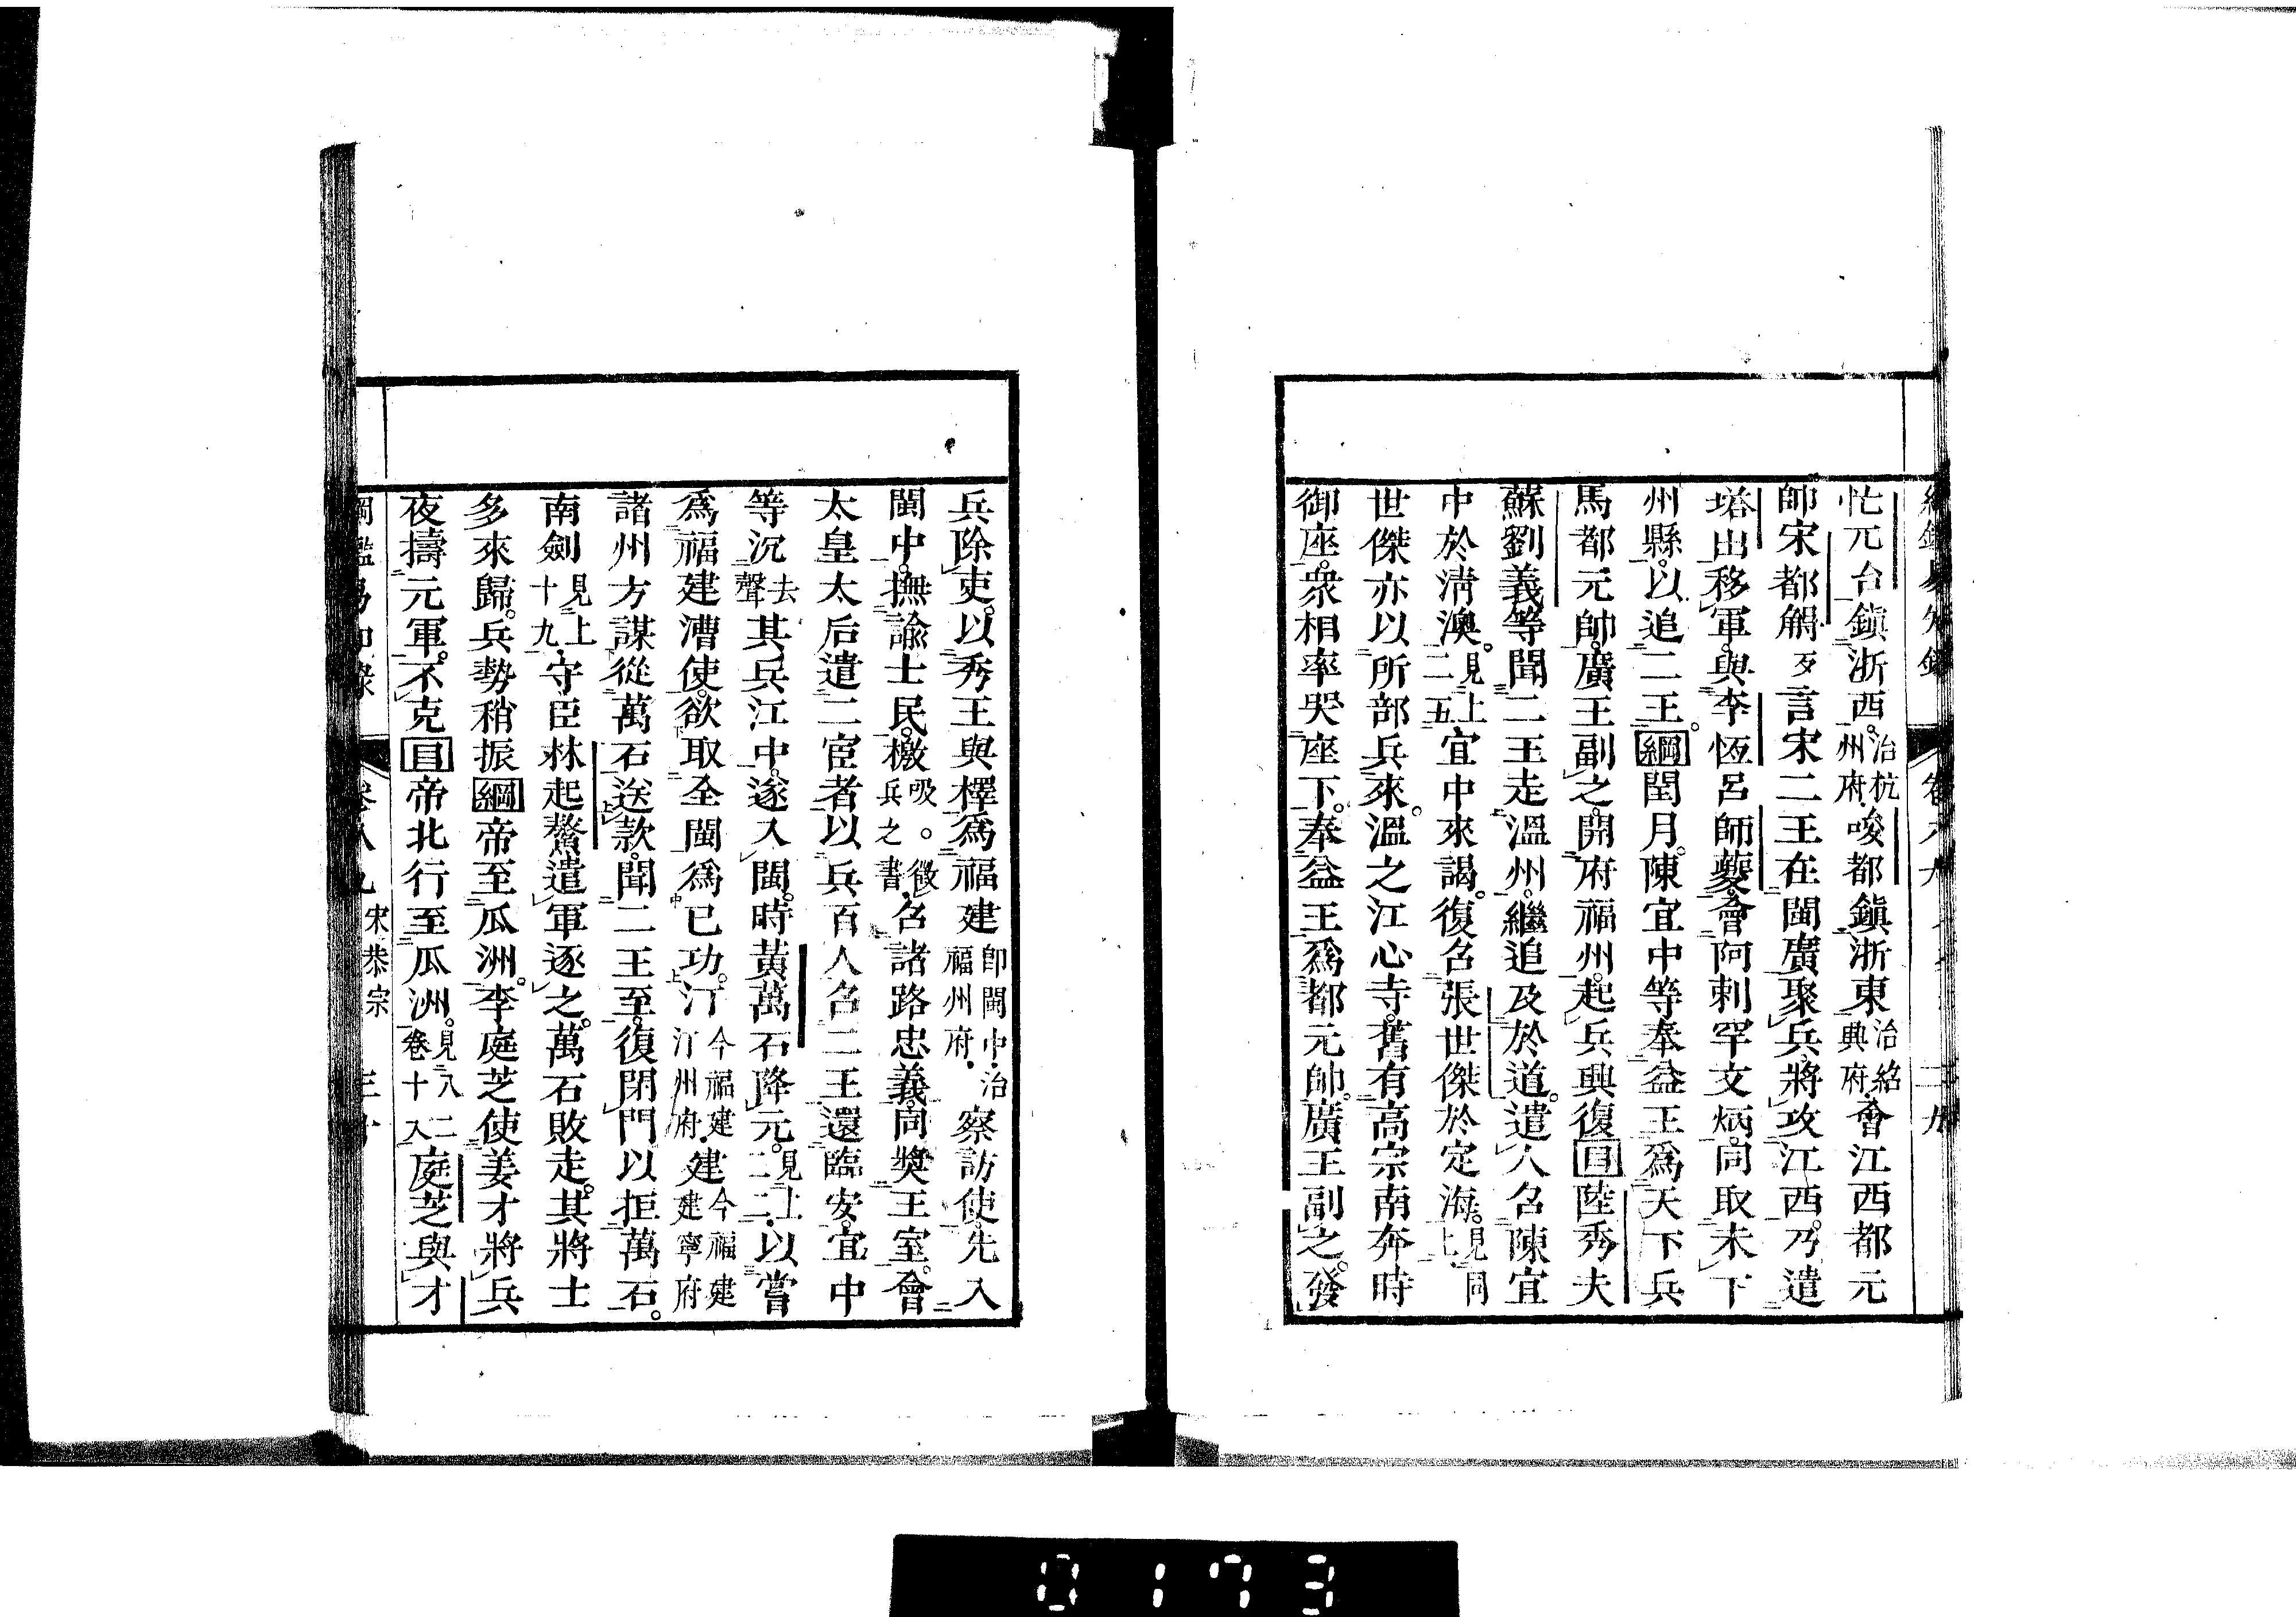 忙兀台鎭浙西治杭州府唆都鎭浙東治紹興府會江西都元
帥宋都䚟歹言宋二王在閩廣聚兵將攻江西乃遣
塔出移軍與李恆呂師夔會阿剌罕文炳同取未下
州縣以追二王綱閏月陳宜中等奉益王爲天下兵
馬都元帥廣王副之開府福州起兵興復目陸秀夫
蘇劉義等聞二王走溫州繼追及於道遣人召陳宜
中於淸澳見上二五宜中來謁復召張世傑於定海見同上
世傑亦以所部兵來溫之江心寺舊有高宗南奔時
御座衆相率哭座下奉益王爲都元帥廣王副之發
兵除吏以秀王與檡爲福建卽閩中治福州府察訪使先入
閩中撫諭士民檄吸徵兵之書召諸路忠義同獎王室會
太皇太后遣二宦者以兵百人召二王還臨安宜中
等沉去聲其兵江中遂入閩時黃萬石降元見上二二以嘗
爲福建漕使欲取全閩爲已功汀今福建汀州府建今福建建寧府
諸州方謀從萬石送款聞二王至復閉門以拒萬石
南劍見上十九守臣林起鰲遣軍逐之萬石敗走其將士
多來歸兵勢稍振綱帝至瓜洲李庭芝使姜才將兵
夜擣元軍不克目帝北行至瓜洲見八二卷十八庭芝與才
宋恭宗